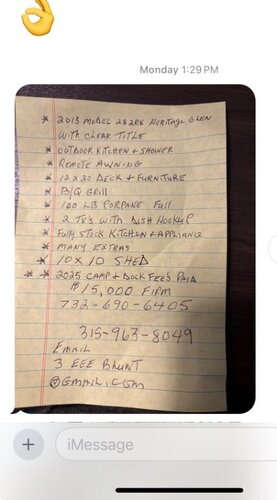 Monday 1:29 PM
* 2013 MODEL 282RK HERITAGE GLEN
WITH CLEAR TITLE
* OUTDOOR KITCHEN + SHOWER
* REMOTE AWNING
* 12 X 20 DECK + FURNITURE
* B/Q GRILL
* 100 LB PORPANE FULL
* 2 TV'S WITH DISH HOOKUP
* FULLY STOCK KITCHEN + APPLIANCE
* MANY EXTRAS
* 10 X 10 SHED
* * 2025 CAMP + DOCK FEES PAID
$15,000 FIRM
732-690-6405
315-963-8049
EMAIL
3 EEE BRUNT
@GMAIL.COM
iMessage